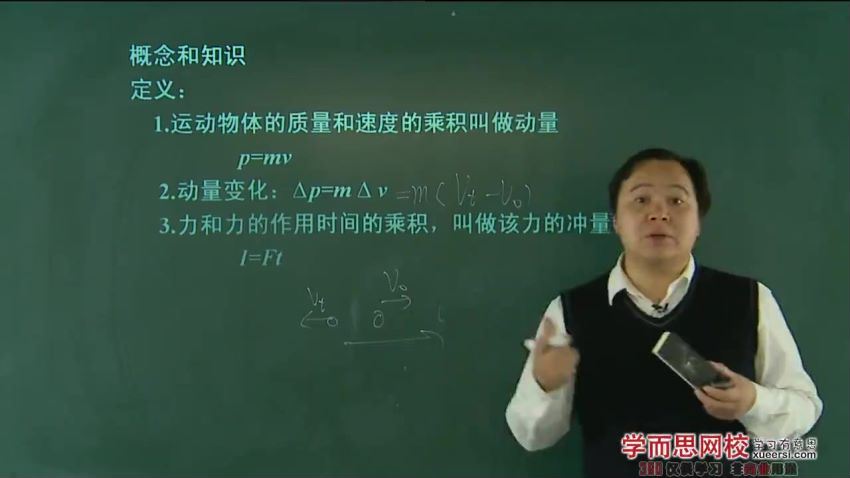 概念和知识
定义：
1.运动物体的质量和速度的乘积叫做动量
p=mv
2.动量变化：Δp=mΔv =m(Vt-V0)
3.力和力的作用时间的乘积，叫做该力的冲量
I=Ft
Vt V0
学而思网校 学习有意思
xueersi.com
仅供学习